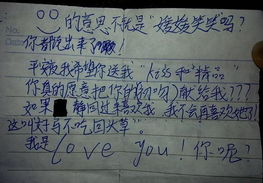 的意思不就是"嘻嘻笑笑"吗?
你看说出来了嘛!
平被我希望你送我"kiss和"精品"
你真的愿意把你自(初吻)献给我???
如果 静回过喜欢我,我不会再喜欢她了!
这叫好马不吃回头草。
我是love you!你呢?